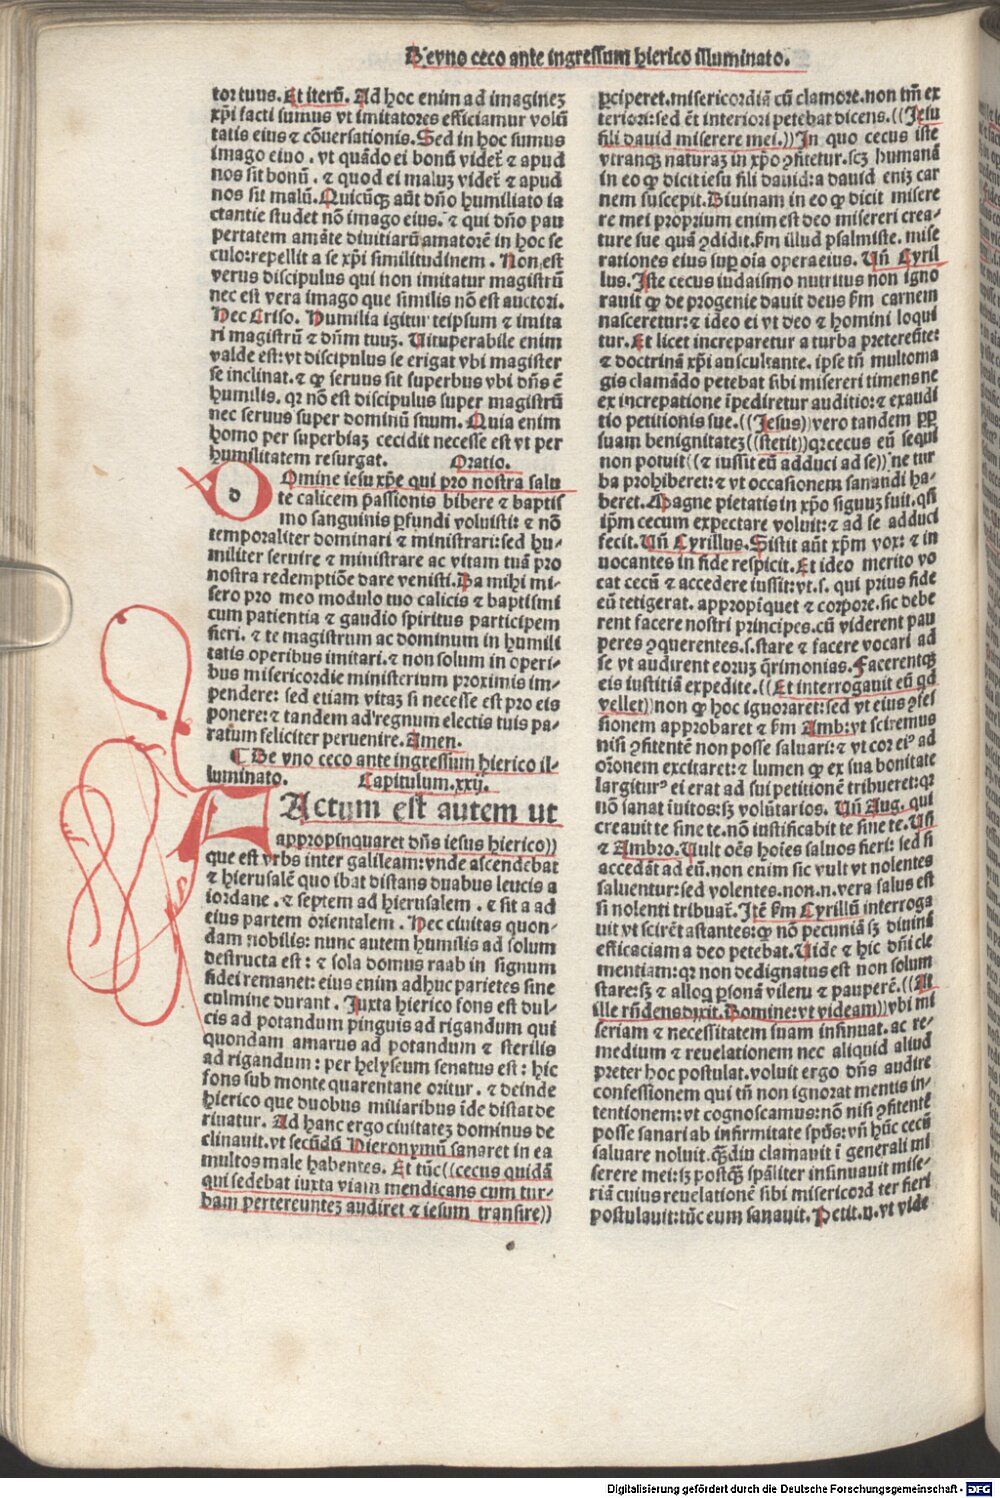 De vno ceco ante ingressum hierico illuminato.
tor tuus. Et iterū. Ad hoc enim ad imagineꝫ
xp̄i facti sumus vt imitatores efficiamur volū
tatis eius ⁊ cōuersationis. Sed in hoc sumus
imago eiuo. vt quādo ei bonū videt̄ ⁊ apud
nos sit bonū. ⁊ quod ei maluꝫ videt̄ ⁊ apud
nos sit malū. Quicūqꝫ aūt dn̄o humiliato ia
ctantie studet nō imago eius. ⁊ qui dn̄o pau
pertatem amāte diuitiarū amatorē in hoc se
culo: repellit a se xp̄i similitudinem. Non est
verus discipulus qui non imitatur magistrū
nec est vera imago que similis nō est auctori.
Hec Criso. Humilia igitur teipsum ⁊ imita
ri magistrū ⁊ dn̄m tuuꝫ. Vituperabile enim
valde est: vt discipulus se erigat vbi magister
se inclinat. ⁊ ꝙ seruus sit superbus vbi dn̄s ē
humilis. qꝛ nō est discipulus super magistrū
nec seruus super dominū suum. Quia enim
homo per superbiaꝫ cecidit necesse est vt per
humilitatem resurgat. Oratio.
d
Omine iesu xp̄e qui pro nostra salu
te calicem passionis bibere ⁊ baptis
mo sanguinis ꝑfundi voluisti: ⁊ nō
temporaliter dominari ⁊ ministrari: sed hu-
militer seruire ⁊ ministrare ac vitam tuā pro
nostra redemptiōe dare venisti. Da mihi mi-
sero pro meo modulo tuo calicis ⁊ baptismi
cum patientia ⁊ gaudio spiritus participem
fieri. ⁊ te magistrum ac dominum in humili
tatis operibus imitari. ⁊ non solum in operi-
bus misericordie ministerium proximis im-
pendere: sed etiam vitaꝫ si necesse est pro eis
ponere: ⁊ tandem ad regnum electis tuis pa-
ratum feliciter peruenire. Amen.
¶ De vno ceco ante ingressum hierico il-
luminato. Capitulum.xxij.
FActum est autem ut
appropinquaret dn̄s iesus hierico))
que est vrbs inter galileam: vnde ascendebat
⁊ hierusalē quo ibat distans duabus leucis a
iordane. ⁊ septem ad hierusalem. ⁊ sit a ad
eius partem orientalem. Hec ciuitas quon-
dam nobilis: nunc autem humilis ad solum
destructa est: ⁊ sola domus raab in signum
fidei remanet: eius enim adhuc parietes sine
culmine durant. Juxta hierico fons est dul-
cis ad potandum pinguis ad rigandum qui
quondam amarus ad potandum ⁊ sterilis
ad rigandum: per helyseum senatus est: hic
fons sub monte quarentane oritur. ⁊ deinde
hierico que duobus miliaribus īde distat de
riuatur. Ad hanc ergo ciuitateꝫ dominus de
clinauit. vt secūdū Hieronymū sanaret in ea
multos male habentes. Et tūc((cecus quidā
qui sedebat iuxta viam mendicans cum tur-
bam pertereunteꝫ audiret ⁊ iesum transire))
ꝑciperet. misericordiā cū clamore. non tm̄ ex
teriori: sed ēt interiori petebat dicens. ((Jesu
fili dauid miserere mei.)) In quo cecus iste
vtranqꝫ naturaꝫ in xp̄o ꝯfitetur. scꝫ humanā
in eo ꝙ dicit iesu fili dauid: a dauid eniꝫ car
nem suscepit. Diuinam in eo ꝙ dicit misere
re mei proprium enim est deo misereri crea-
ture sue quā ꝯdidit. s̄m illud psalmiste. mise
rationes eius suꝑ oīa opera eius. Vn̄ Cyril
lus. Iste cecus iudaismo nutritus non igno
rauit ꝙ de progenie dauit deus s̄m carnem
nasceretur: ⁊ ideo ei vt deo ⁊ homini loqui
tur. Et licet increparetur a turba pretereūte:
⁊ doctrinā xp̄i auscultante. ipse tn̄ multoma
gis clamādo petebat sibi misereri timens ne
ex increpatione īpediretur auditio: ⁊ exaudi
tio petitionis sue. ((Jesus)) vero tandem ꝓp
suam benignitateꝫ ((stetit)) qꝛ cecus eū sequi
non potuit ((⁊ iussit eū adduci ad se)) ne tur
ba prohiberet: ⁊ vt occasionem sanandi ha-
beret. Magne pietatis in xp̄o signuꝫ fuit. qn̄
ip̄m cecum expectare voluit: ⁊ ad se adduci
fecit. Vn̄ Cyrillus. Sistit aūt xp̄m vox: ⁊ in
uocantes in fide respicit. Et ideo merito vo
cat cecū ⁊ accedere iussit: vt. s. qui prius fide
eū tetigerat. appropīquet ⁊ corpore. sic debe
rent facere nostri principes. cū viderent pau
peres ꝯquerentes. s. stare ⁊ facere vocari ad
se vt audirent eoruꝫ q̄rimonias. Facerentqꝫ
eis iustitiā expedite. ((Et interrogauit eū qd
vellet)) non ꝙ hoc ignoraret: sed vt eius ꝯfes
sionem approbaret ⁊ s̄m Amb: vt sciremus
nisi ꝯfitentē non posse saluari: ⁊ vt cor eiꝰ ad
or̄onem excitaret: ⁊ lumen ꝙ ex sua bonitate
largiturꝰ ei erat ad sui petitionē tribueret: qꝛ
nō sanat īuitos: sꝫ volūtarios. Vn̄ Aug. qui
creauit te sine te. nō iustificabit te sine te. Vn̄
⁊ Ambro. Vult oēs hoīes saluos fieri: sed si
accedāt ad eū. non enim sic vult vt nolentes
saluentur: sed volentes. non. n. vera salus est
si nolenti tribuat̄. Itē s̄m Cyrillū interroga
uit vt scirēt astantes: ꝙ nō pecuniā sꝫ diuinā
efficaciam a deo petebat. Vide ⁊ hic dn̄i cle
mentiam: qꝛ non dedignatus est non solum
stare: sꝫ ⁊ alloq̄ ꝑsonā vilem ⁊ pauperē. ((At
ille rn̄dens dixit. Domine: vt videam)) vbi mi
seriam ⁊ necessitatem suam insinuat. ac re-
medium ⁊ reuelationem nec aliquid aliud
preter hoc postulat. voluit ergo dn̄s audire
confessionem qui tn̄ non ignorat mentis in-
tentionem: vt cognoscamus: nō nisi ꝯfitentē
posse sanari ab infirmitate spūs: vn̄ hūc cecū
saluare noluit. q̄ꝫdiu clamauit ī generali mi
serere mei: sꝫ postqꝫ sp̄aliter insinuauit mise-
riā cuius reuelationē sibi misericorditer fieri
postulauit: tūc eum sanauit. Petit. n. vt vide
Digitalisierung gefördert durch die Deutsche Forschungsgemeinschaft - DFG